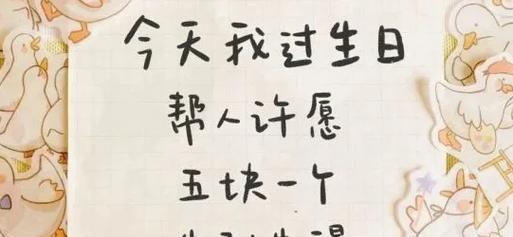 今天我过生日
帮人许愿
五块一个